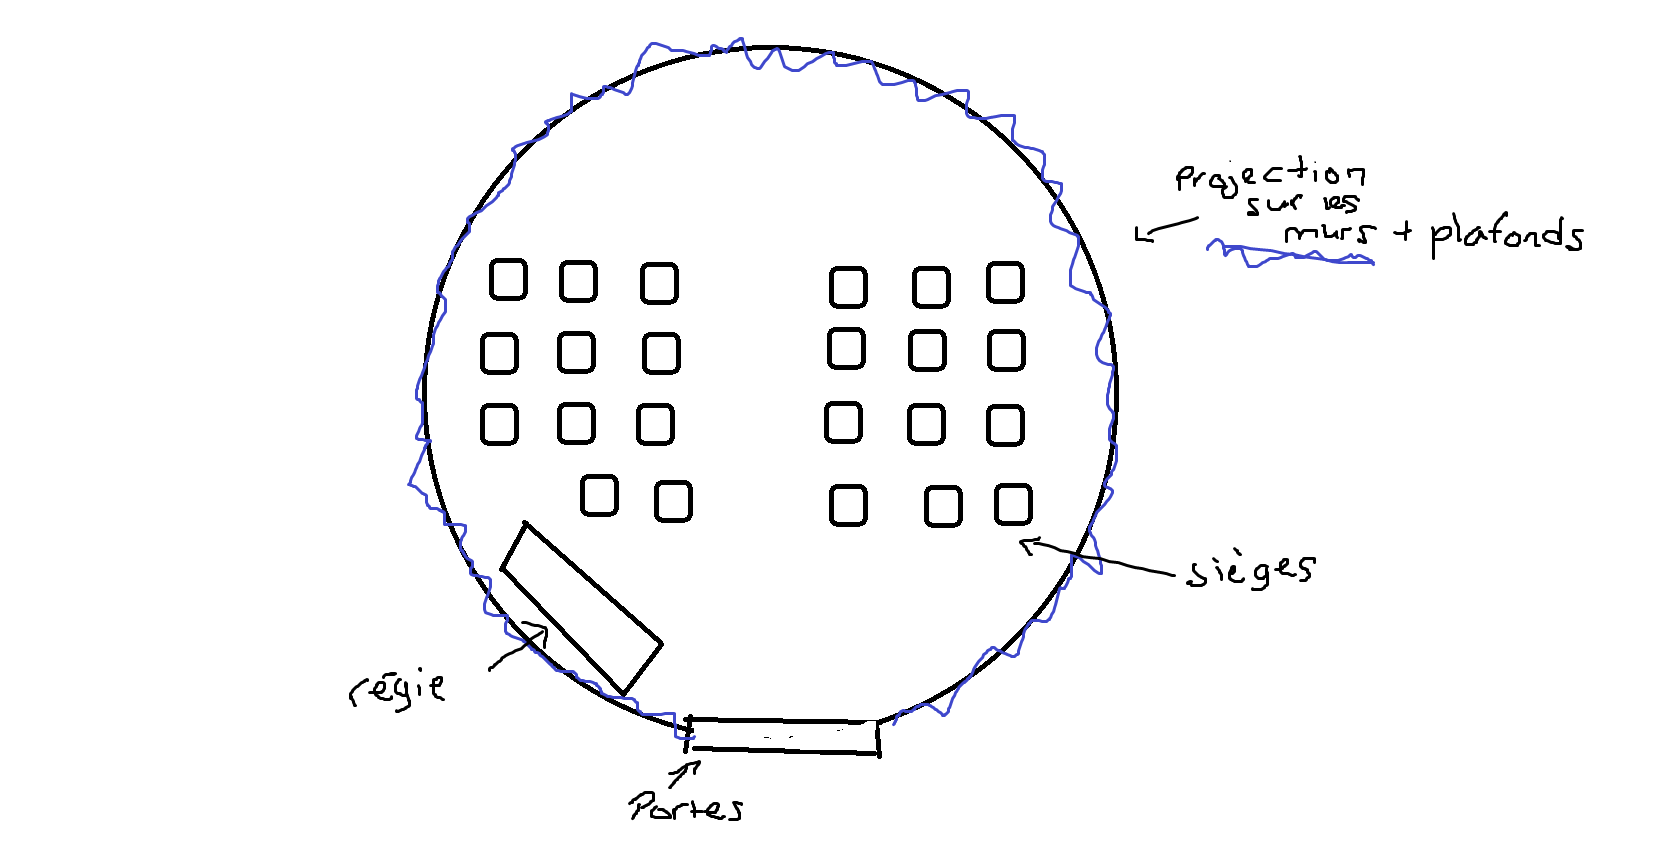 Projection
sur les
murs + plafonds
sièges
régie
Portes